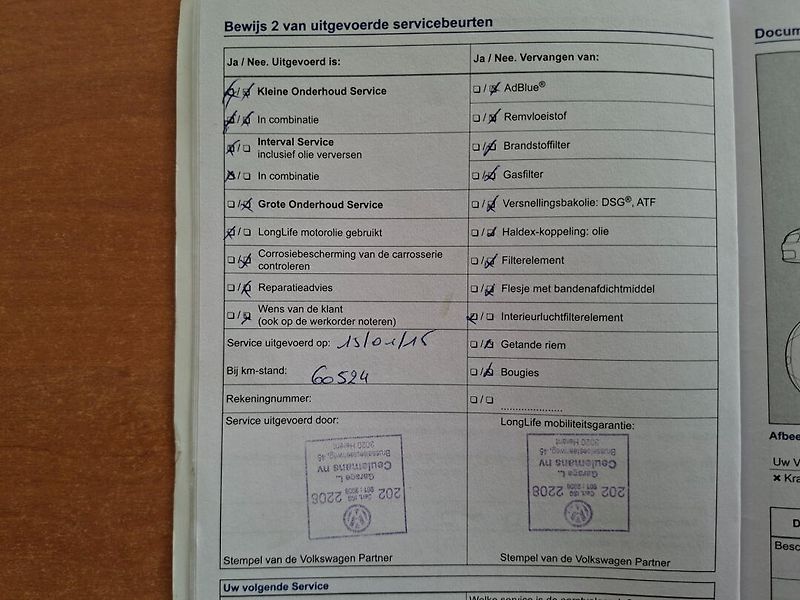 Bewijs 2 van uitgevoerde servicebeurten
Ja / Nee. Uitgevoerd is:
Kleine Onderhoud Service
In combinatie
Interval Service
inclusief olie verversen
In combinatie
Grote Onderhoud Service
LongLife motorolie gebruikt
Corrosiebescherming van de carrosserie
controleren
Reparatieadvies
Wens van de klant
(ook op de werkorder noteren)
Service uitgevoerd op: 13/01/15
Bij km-stand: 60524
Rekeningnummer:
Service uitgevoerd door:
3020 Herent
Brusselsesteenweg, 45
Ceulemans nv
Garage L.
202 2208
Stempel van de Volkswagen Partner
Uw volgende Service
Ja / Nee. Vervangen van:
AdBlue®
Remvloeistof
Brandstoffilter
Gasfilter
Versnellingsbakolie: DSG®, ATF
Haldex-koppeling: olie
Filterelement
Flesje met bandenafdichtmiddel
Interieurluchtfilterelement
Getande riem
Bougies
LongLife mobiliteitsgarantie:
3020 Herent
Brusselsesteenweg, 45
Ceulemans nv
Garage L.
202 2208
Stempel van de Volkswagen Partner
Docum
Afbee
Uw V
× Kra
D
Besc